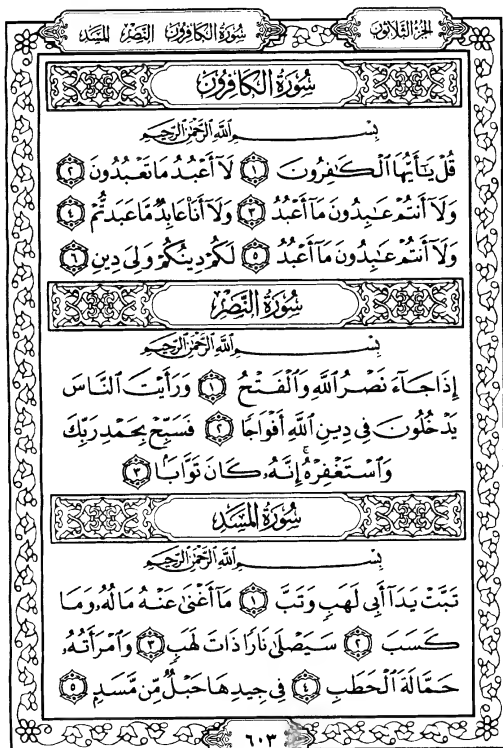 الجزء الثلاثون
سورة الكافرون النصر المسد
سُورَةُ الكَافِرُون
بِسْمِ اللَّهِ الرَّحْمَٰنِ الرَّحِيمِ
قُلْ يَٰٓأَيُّهَا ٱلْكَٰفِرُونَ ١ لَآ أَعْبُدُ مَا تَعْبُدُونَ ٢
وَلَآ أَنتُمْ عَٰبِدُونَ مَآ أَعْبُدُ ٣ وَلَآ أَنَا۠ عَابِدٌ مَّا عَبَدتُّمْ ٤
وَلَآ أَنتُمْ عَٰبِدُونَ مَآ أَعْبُدُ ٥ لَكُمْ دِينُكُمْ وَلِىَ دِينِ ٦
سُورَةُ النَّصْرِ
بِسْمِ اللَّهِ الرَّحْمَٰنِ الرَّحِيمِ
إِذَا جَآءَ نَصْرُ ٱللَّهِ وَٱلْفَتْحُ ١ وَرَأَيْتَ ٱلنَّاسَ
يَدْخُلُونَ فِى دِينِ ٱللَّهِ أَفْوَاجًا ٢ فَسَبِّحْ بِحَمْدِ رَبِّكَ
وَٱسْتَغْفِرْهُ ۚ إِنَّهُۥ كَانَ تَوَّابًۢا ٣
سُورَةُ المَسَدِ
بِسْمِ اللَّهِ الرَّحْمَٰنِ الرَّحِيمِ
تَبَّتْ يَدَآ أَبِى لَهَبٍ وَتَبَّ ١ مَآ أَغْنَىٰ عَنْهُ مَالُهُۥ وَمَا
كَسَبَ ٢ سَيَصْلَىٰ نَارًا ذَاتَ لَهَبٍ ٣ وَٱمْرَأَتُهُۥ
حَمَّالَةَ ٱلْحَطَبِ ٤ فِى جِيدِهَا حَبْلٌ مِّن مَّسَدٍۭ ٥
٦٠٣